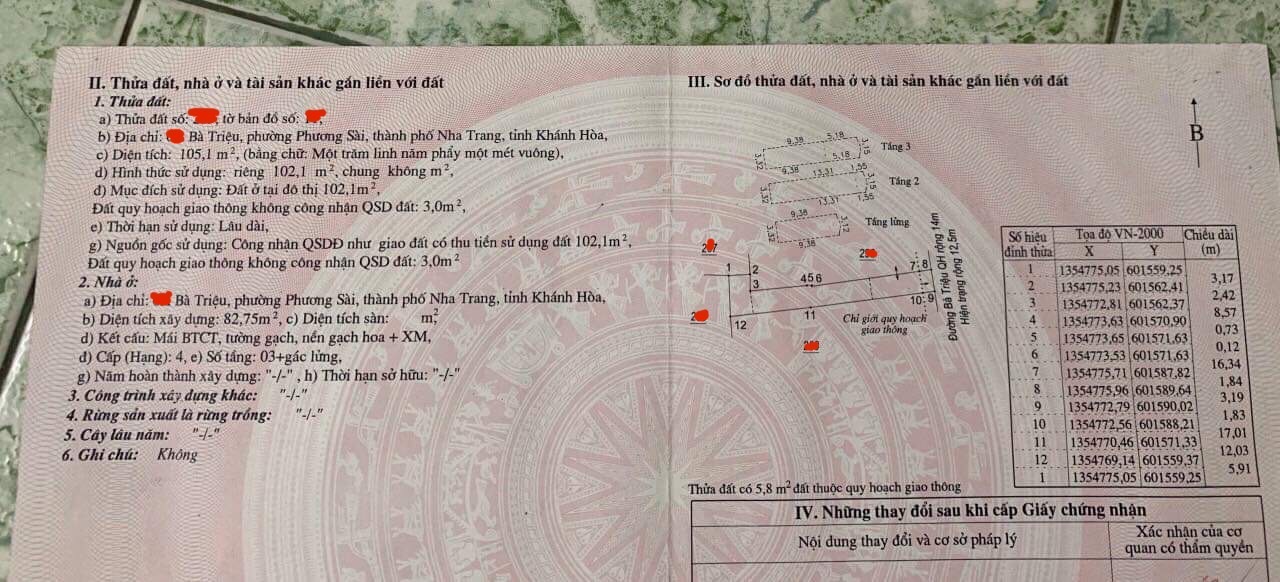 II. Thửa đất, nhà ở và tài sản khác gắn liền với đất
1. Thửa đất:
a) Thửa đất số: , tờ bản đồ số:
b) Địa chỉ: Bà Triệu, phường Phương Sài, thành phố Nha Trang, tỉnh Khánh Hòa,
c) Diện tích: 105,1 m², (bằng chữ: Một trăm linh năm phẩy một mét vuông),
d) Hình thức sử dụng: riêng 102,1 m², chung không m²,
đ) Mục đích sử dụng: Đất ở tại đô thị 102,1m²,
Đất quy hoạch giao thông không công nhận QSD đất: 3,0m²,
e) Thời hạn sử dụng: Lâu dài,
g) Nguồn gốc sử dụng: Công nhận QSDĐ như giao đất có thu tiền sử dụng đất 102,1m²,
Đất quy hoạch giao thông không công nhận QSD đất: 3,0m²
2. Nhà ở:
a) Địa chỉ: Bà Triệu, phường Phương Sài, thành phố Nha Trang, tỉnh Khánh Hòa,
b) Diện tích xây dựng: 82,75m², c) Diện tích sàn: m²,
d) Kết cấu: Mái BTCT, tường gạch, nền gạch hoa + XM,
đ) Cấp (Hạng): 4, e) Số tầng: 03+gác lửng,
g) Năm hoàn thành xây dựng: "-/-" , h) Thời hạn sở hữu: "-/-"
3. Công trình xây dựng khác: "-/-"
4. Rừng sản xuất là rừng trồng: "-/-"
5. Cây lâu năm: "-/-"
6. Ghi chú: Không
III. Sơ đồ thửa đất, nhà ở và tài sản khác gắn liền với đất
B
9,38 5,18
3,32 3,15 Tầng 3
9,38 5,18
13,31 1,55
3,32 3,15 Tầng 2
13,31 1,55
9,38
3,32 3,12 Tầng lửng
9,38
1 2 3 4 5 6 7 8
12 11 10 9
Chỉ giới quy hoạch
giao thông
Đường Bà Triệu QH rộng 14m
Hiện trạng rộng 12,5m
Số hiệu đỉnh thửa Tọa độ VN-2000 Chiều dài (m)
X Y
1 1354775,05 601559,25
3,17
2 1354775,23 601562,41
2,42
3 1354772,81 601562,37
8,57
4 1354773,63 601570,90
0,73
5 1354773,65 601571,63
0,12
6 1354773,53 601571,63
16,34
7 1354775,71 601587,82
1,84
8 1354775,96 601589,64
3,19
9 1354772,79 601590,02
1,83
10 1354772,56 601588,21
17,01
11 1354770,46 601571,33
12,03
12 1354769,14 601559,37
5,91
1 1354775,05 601559,25
Thửa đất có 5,8 m² đất thuộc quy hoạch giao thông
IV. Những thay đổi sau khi cấp Giấy chứng nhận
Nội dung thay đổi và cơ sở pháp lý
Xác nhận của cơ
quan có thẩm quyền